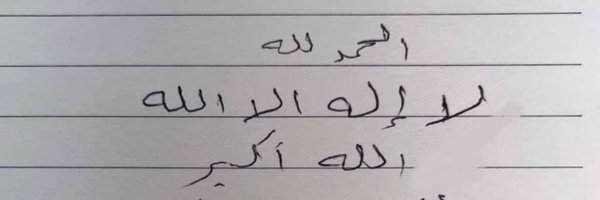 الحمد لله
لا إله الا الله
الله أكبر